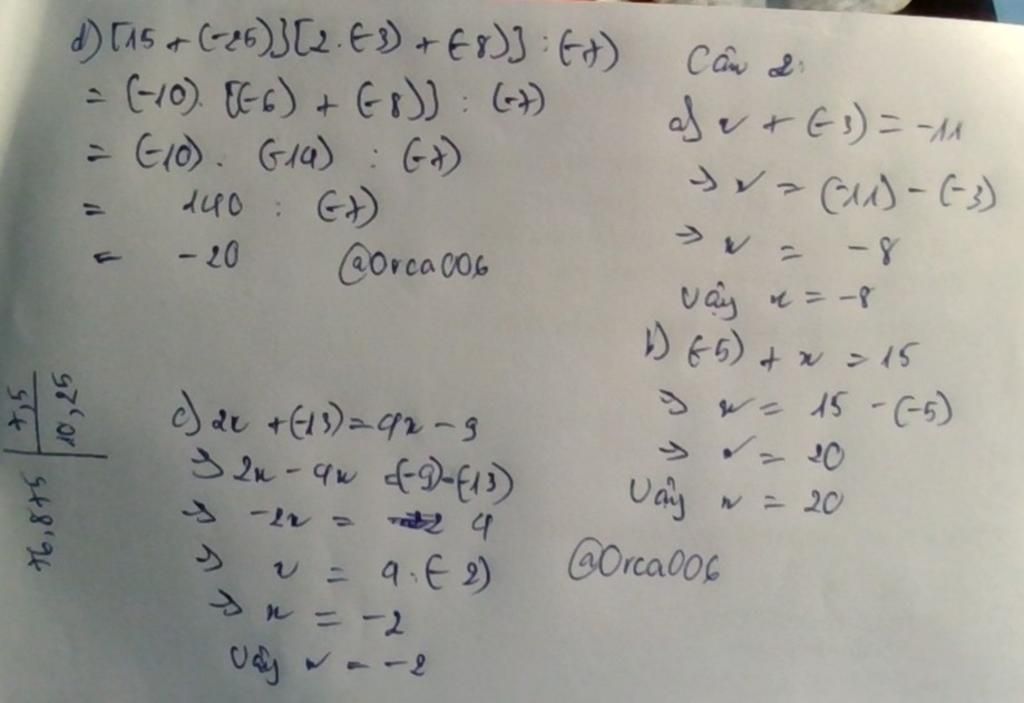 d) [15 + (-25)][2.(-3) + (-8)] : (-7)
= (-10). [(-6) + (-8)] : (-7)
= (-10). (-14) : (-7)
= 140 : (-7)
= -20 @Orca006
Câu 2:
a) x + (-3) = -11
→ x = (-11) - (-3)
→ x = -8
Vậy x = -8
b) (-5) + x = 15
→ x = 15 - (-5)
→ x = 20
Vậy x = 20
@Orca006
c) 2x + (-13) = 4x - 9
→ 2x - 4x = (-9) - (-13)
→ -2x = 4
→ x = 4 : (-2)
→ x = -2
Vậy x = -2
76,875 7,5
10,25